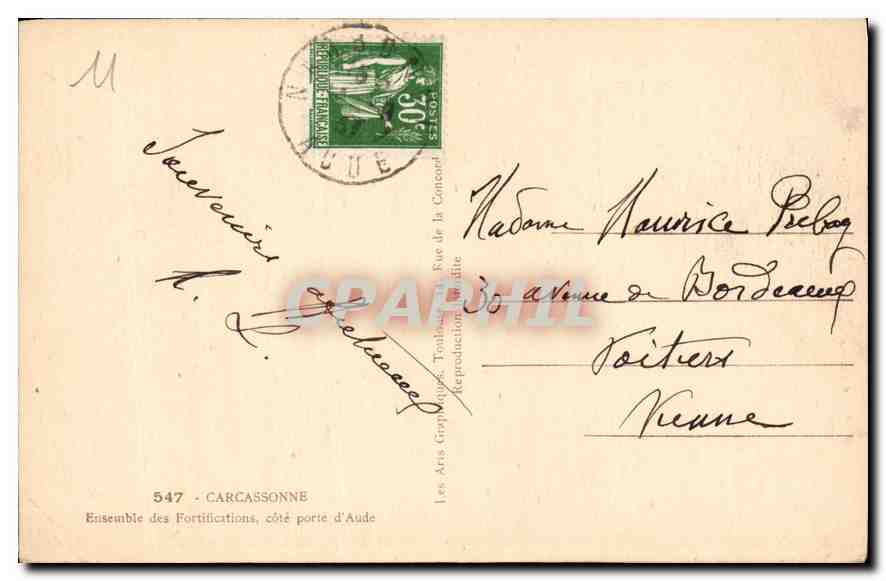 11
Souvenirs
affectueux
A. L.
RÉPUBLIQUE-FRANÇAISE
POSTES
30c
AUDE
Madame Maurice
30 avenue de Bordeaux
Poitiers
Vienne
CPAPHIL
Les Arts Graphiques, Toulouse, Rue de la Concorde
Reproduction Interdite
547 - CARCASSONNE
Ensemble des Fortifications, côté porte d'Aude